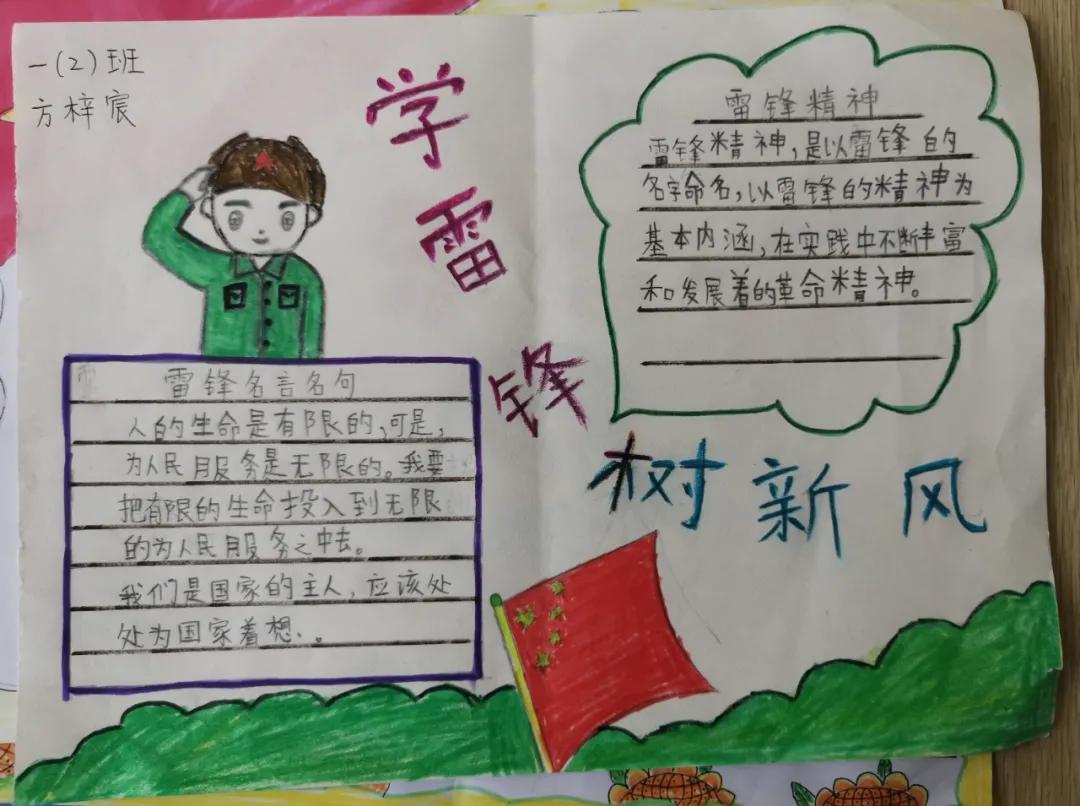 一(2)班
方梓宸
学雷锋
树新风
雷锋精神
雷锋精神,是以雷锋的
名字命名,以雷锋的精神为
基本内涵,在实践中不断丰富
和发展着的革命精神。
雷锋名言名句
人的生命是有限的,可是,
为人民服务是无限的。我要
把有限的生命投入到无限
的为人民服务之中去。
我们是国家的主人,应该处
处为国家着想.。